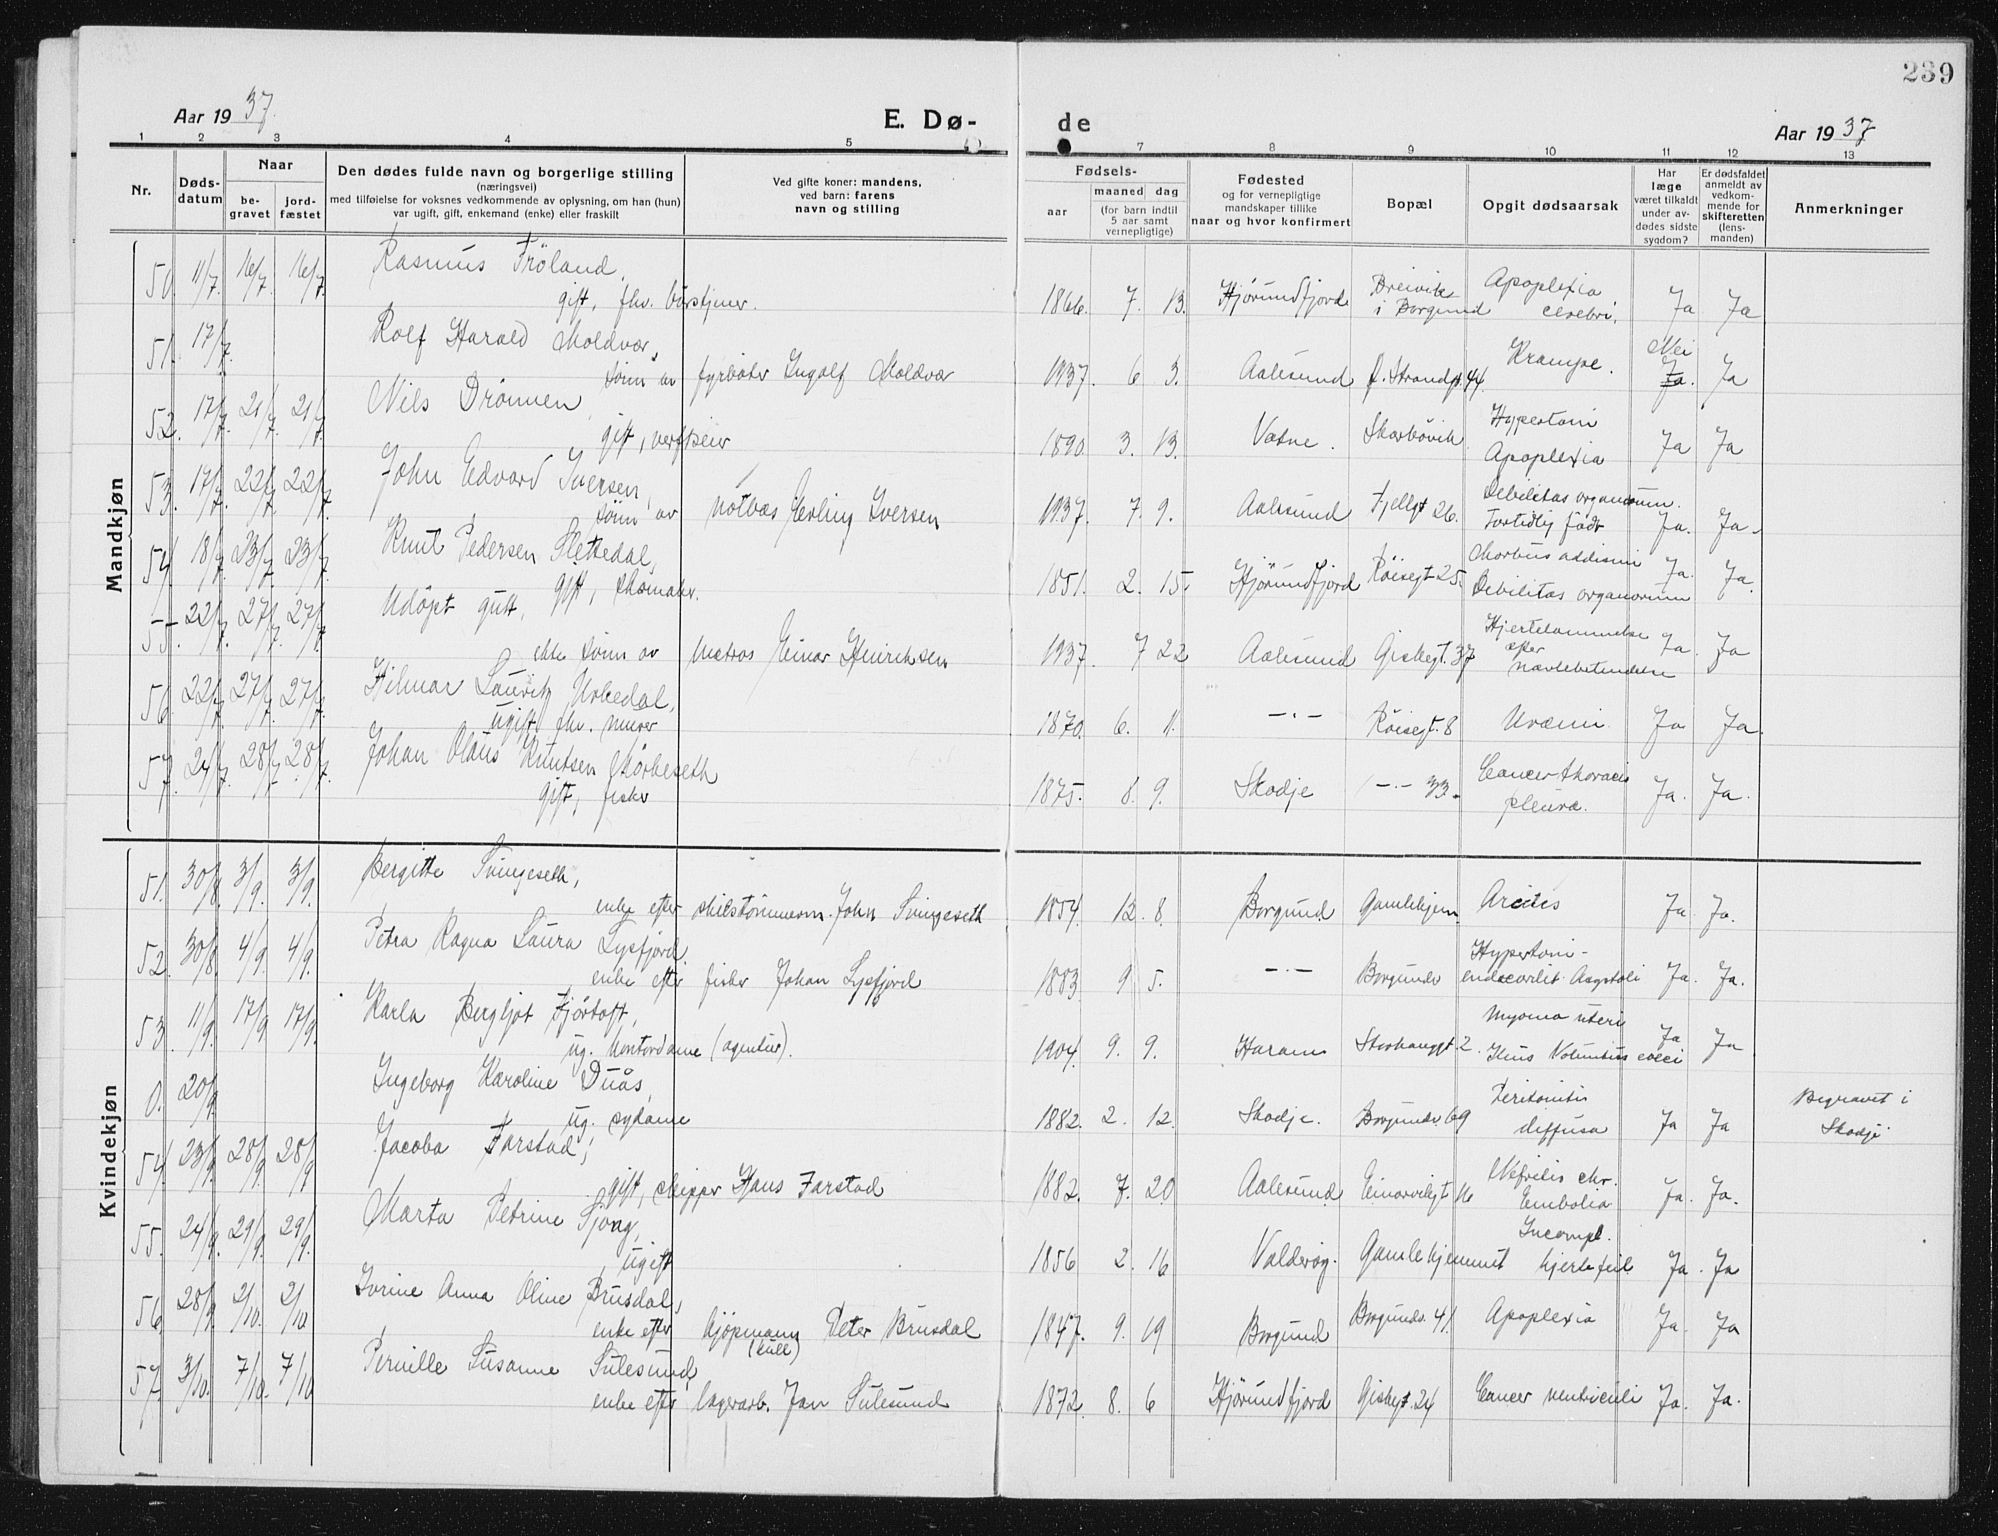 239
Aar 1937.
E. Dø-
de
Aar 1937
1 2 3 4 5 7 8 9 10 11 12 13
Nr.
Døds-
datum
Naar
be-
gravet
jord-
fæstet
Den dødes fulde navn og borgerlige stilling
(næringsvei)
med tilføielse for voksnes vedkommende av oplysning, om han (hun)
var ugift, gift, enkemand (enke) eller fraskilt
Ved gifte koner: mandens,
ved barn: farens
navn og stilling
Fødsels-
aar
maaned dag
(for barn indtil
5 aar samt
vernepligtige)
Fødested
og for vernepligtige
mandskaper tillike
naar og hvor konfirmert
Bopæl
Opgit dødsaarsak
Har
læge
været tilkaldt
under av-
dødes sidste
sygdom?
Er dødsfaldet
anmeldt av
vedkom-
mende for
skifteretten
(lens-
manden)
Anmerkninger
Mandkjøn
50. 11/7. 16/7. 16/7. Rasmus Tröland,
gift, fhv. 1866. 7. 13. Hjørundfjord Breivik i Borgund Apoplexia cerebri. Ja Ja
51. 17/7. Rolf Harald Moldvær,
sönn av fyrbøter Ingolf Moldvær 1937. 6 3. Aalesund Ø. Strandgt. 44. Krampe. Nei Ja. Ja
52. 17/7. 21/7. 21/7. Nils Drönnen,
gift, verftseier 1890. 3. 13. Vatne. Skarbövik Hypertoni Apoplexia Ja Ja
53. 17/7. 22/7. 22/7. John Edvard Iversen,
sönn av notbas Erling Iversen 1937. 7. 9. Aalesund Fjellgt 26. Debilitas organorum. Fortidlig födt Ja. Ja.
54. 18/7. 23/7. 23/7. Knut Pedersen Slettedal,
gift, skomaker. 1851. 2. 15. Hjørundfjord Röisegt 25. Morbus addisoni Debilitas organorum Ja. Ja.
55. 22/7. 27/7. 27/7. Udöpt gutt,
ekte sönn av matros Einar Henriksen 1937. 7 22 Aalesund Giskegt. 37 Hjertelammelse efter navlebetendelse Ja. Ja
56. 22/7. 27/7. 27/7. Hilmar Lauritz Urkedal,
ugift, fhv. murer 1870. 6. 11. -"- Röisegt. 8 Uræmi Ja Ja.
57. 24/7. 28/7. 28/7. Johan Olaus Knutsen
gift, fisker 1875. 8. 9. Skodje -"- 33. Cancer thoracis pleura. Ja. Ja.
Kvindekjøn
51. 30/8. 3/9. 3/9. Bergitte Svingeseth,
enke efter John Svingeseth 1854. 12. 8. Borgund Gamlehjem. Ja. Ja.
52. 30/8. 4/9. 4/9. Petra Ragna Laura Lysfjord.
enke efter fisker Johan Lysfjord 1883 9 5. -"- Borgundv Hypertoni - endocardit Ja. Ja.
53. 11/9. 17/9 17/9. Karla Bergljot Fjörtoft,
ug. kontordame (agentur). 1904. 9. 9. Haram Storhauggt. 2. Myoma uteri Ileus Volvulus coeci Ja Ja
0. 20/9. Ingeborg Karoline Duås,
ug. sydame 1882. 2. 12. Skodje. Borgundv. 69 Peritonitis diffusa Ja Ja Begravet i Skodje
54. 23/9. 28/9. 28/9 Jacoba Farstad,
gift, skipper Hans Farstad 1882. 7. 20 Aalesund Einarvikgt 16 Nefritis chr. Embolia Ja. Ja.
55. 24/9. 29/9. 29/9. Marta Petrine Sjong,
ugift 1856 2. 16 Valderøy. Gamlehjemmet Incompl. hjertefeil Ja. Ja
56. 28/9. 2/10. 2/10 Ivrine Anna Oline Brusdal,
enke efter kjøpmann (kull) Peter Brusdal 1847. 9. 19 Borgund Borgundv. 41. Apoplexia Ja. Ja
57 3/10. 7/10. 7/10 Pernille Susanne Sulesund,
enke efter lagerarb. Jan Sulesund 1872. 8. 6 Hjørundfjord Giskegt. 24 Cancer ventriculi Ja. Ja.